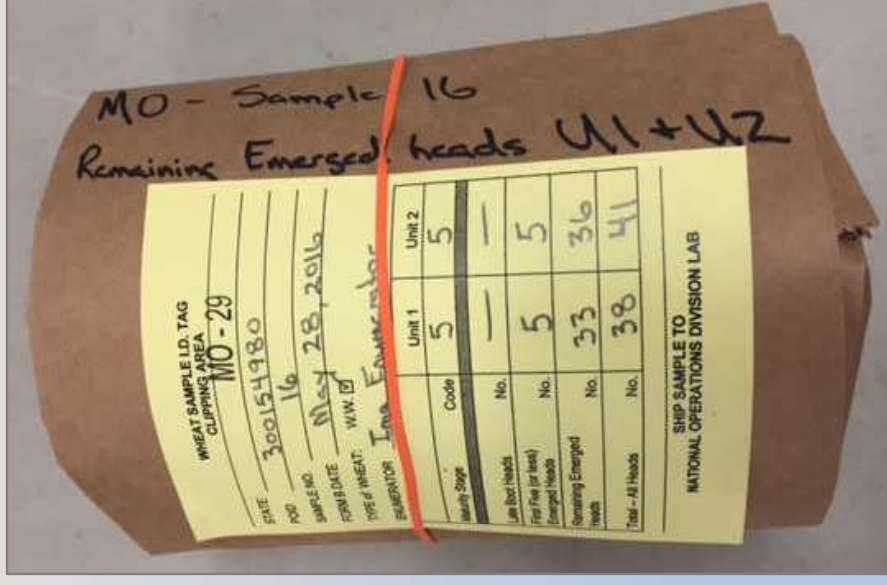 MO - Sample 16
Remaining Emerged heads U1 + U2
WHEAT SAMPLE I.D. TAG
CLIPPING AREA
STATE MO - 29
POID 300154980
SAMPLE NO. 16
FORM B DATE May 28, 2016
TYPE of WHEAT: W.W. ☑
ENUMERATOR Ima Enumerator
Unit 1 Unit 2
Maturity Stage Code 5 5
Late Boot Heads No. — —
First Five (or less) Emerged Heads No. 5 5
Remaining Emerged Heads No. 33 36
Total – All Heads No. 38 41
SHIP SAMPLE TO
NATIONAL OPERATIONS DIVISION LAB